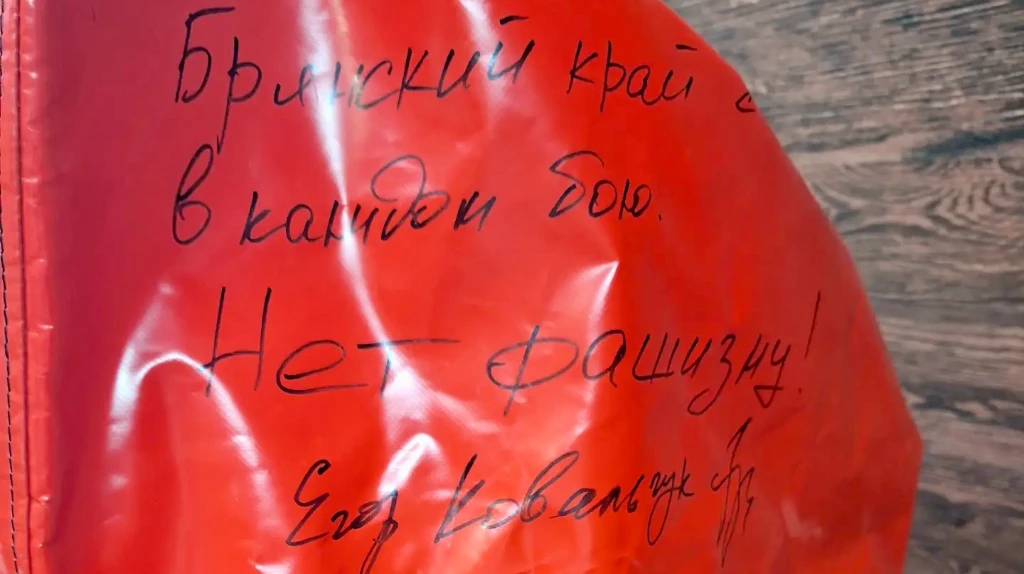 Брянский край с
в каждом бою.
Нет фашизму!
Егор Ковальчук